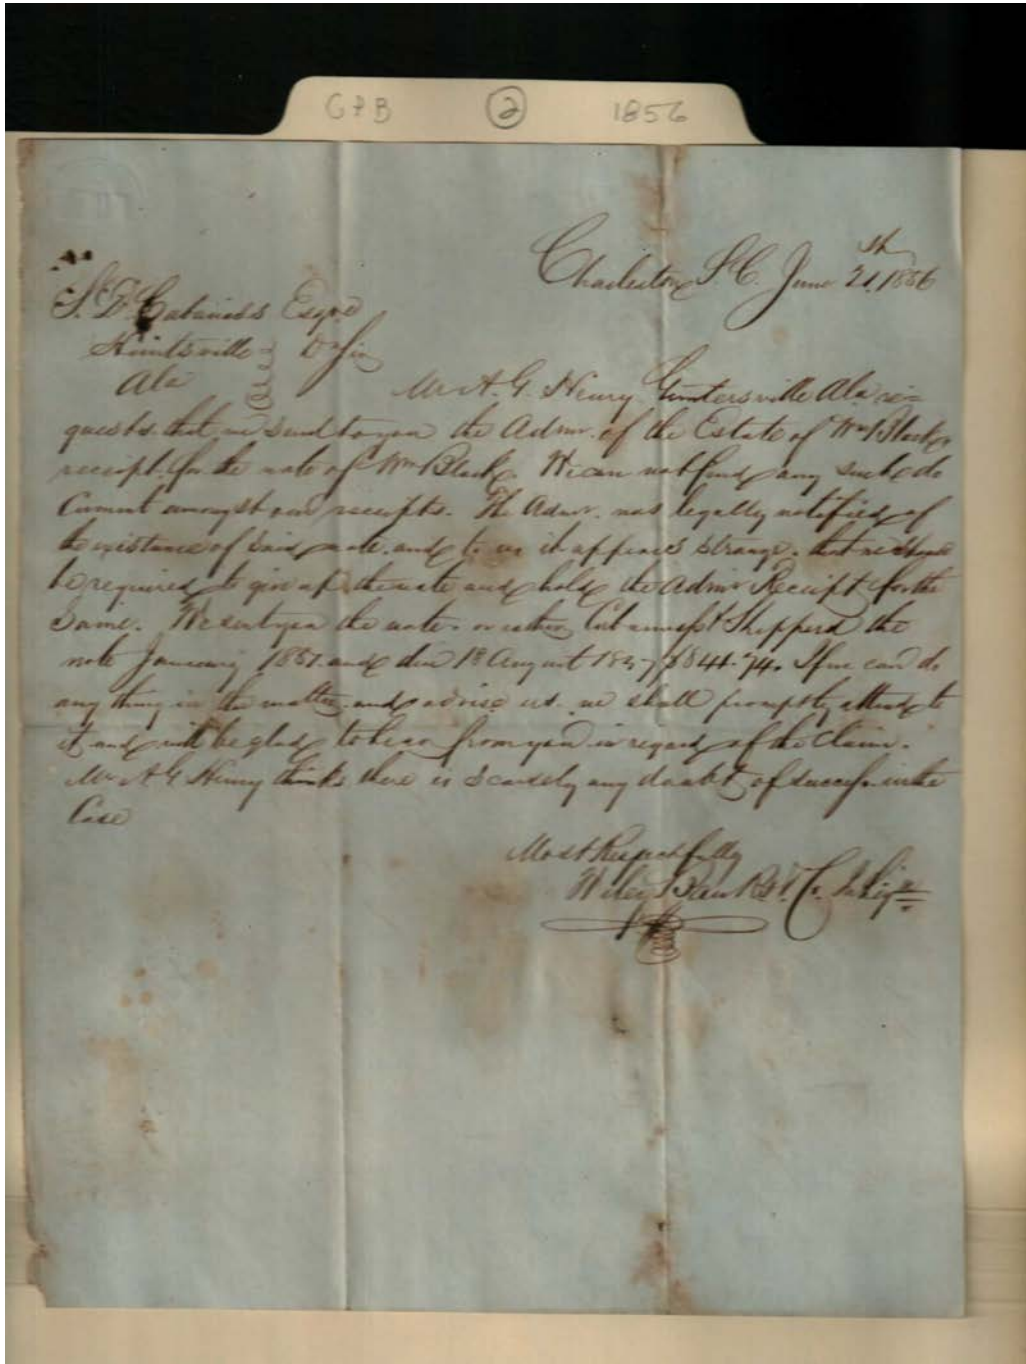 GPB 2 1856
Charleston S.C. June 21, 1856
S. D. Cabaniss Esqre
Huntsville Dr Sir
Ala
Mr A. G. Henry Guntersville Ala re=
quests that we send to you the Admr. of the Estate of Wm Black
receipt for the note of Wm Black. We can not find any such do
cument amongst our receipts. The Admr. was legally notified of
the existance of said note. and to us it appears strange. that we should
be required to give up the note and hold the Admr Receipt for the
Same. We sent you the note or rather Cabaniss & Shepperd the
note January 1851 and due 1st August $844.74. If we can do
any thing in the matter and advise us. we shall promptly attend to
it and will be glad to hear from you in regard of the Claim.
Mr A G Henry thinks there is scarcely any doubt of success in the
Case
Most Respectfully
Wiley & Co.